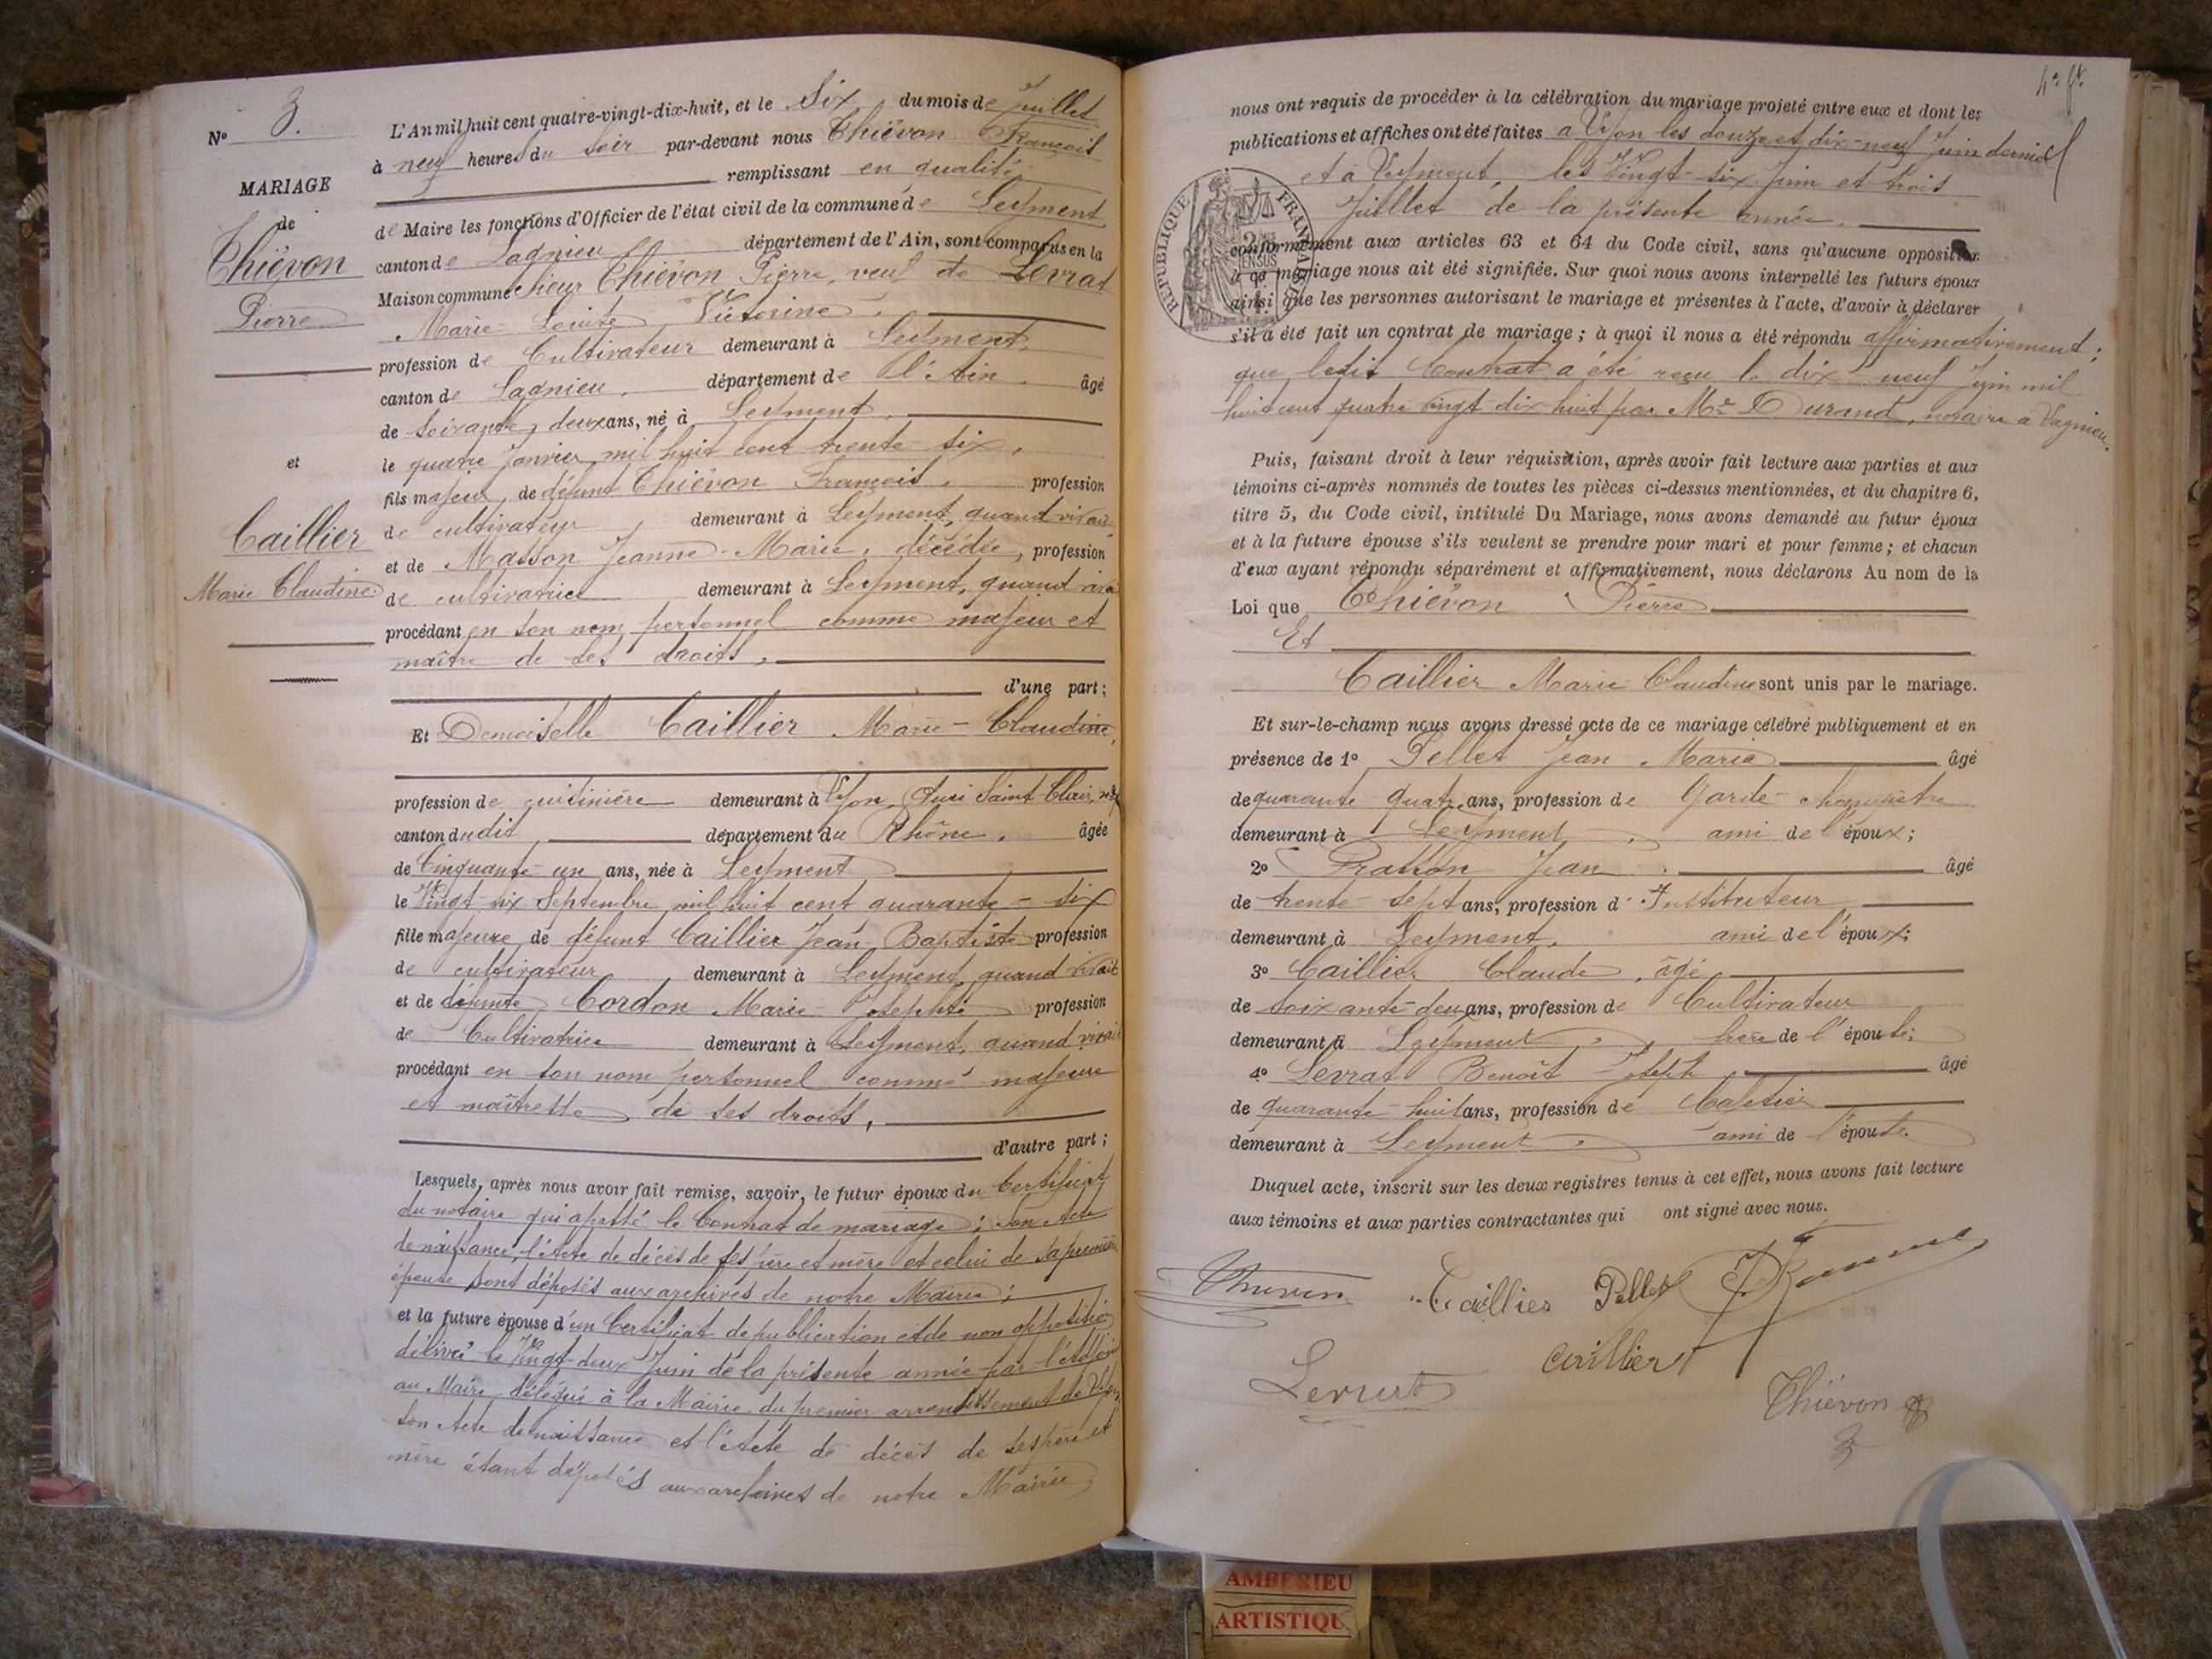 N° 3.
MARIAGE
de
Thiévon
Pierre
et
Caillier
Marie Claudine
L'An mil huit cent quatre-vingt-dix-huit, et le Six du mois de Juillet
à neuf heures du soir par-devant nous Thiévon François
remplissant en qualité
de Maire les fonctions d'Officier de l'état civil de la commune de Leyment
canton de Lagnieu département de l'Ain, sont comparus en la
Maison commune Sieur Thiévon Pierre, veuf de Levrat
Marie-Louise Victorine,
profession de Cultivateur demeurant à Leyment,
canton de Lagnieu, département de l'Ain, âgé
de soixante-deux ans, né à Leyment,
le quatre Janvier mil huit cent trente-six,
fils majeur de défunt Thiévon François, profession
de cultivateur, demeurant à Leyment, quand vivait
et de Masson Jeanne-Marie, décédée, profession
de cultivatrice demeurant à Leyment, quand vivait
procédant en son nom personnel comme majeur et
maître de ses droits,
d'une part ;
Et Demoiselle Caillier Marie-Claudine,
profession de cuisinière demeurant à Lyon, Quai Saint-Clair,
canton dudit, département du Rhône, âgée
de Cinquante-un ans, née à Leyment
le Vingt-six Septembre mil huit cent quarante-six
fille majeure de défunt Caillier Jean Baptiste profession
de cultivateur, demeurant à Leyment, quand vivait
et de défunte Cordon Marie-Josephte profession
de Cultivatrice demeurant à Leyment, quand vivait
procédant en son nom personnel comme majeure
et maîtresse de ses droits,
d'autre part ;
Lesquels, après nous avoir fait remise, savoir, le futur époux du Certificat
du notaire qui a passé le Contrat de mariage ; Son Acte
de naissance, l'Acte de décès de ses père et mère et celui de sa première
épouse sont déposés aux archives de notre Mairie ;
et la future épouse d'un Certificat de publication et de non opposition
délivré le Vingt-deux Juin de la présente année par l'Adjoint
au Maire délégué à la Mairie du premier arrondissement de Lyon,
son Acte de naissance et l'Acte de décès de ses père et
mère étant déposés aux archives de notre Mairie
nous ont requis de procéder à la célébration du mariage projeté entre eux et dont les
publications et affiches ont été faites a Lyon les douze et dix-neuf Juin dernier
et à Leyment, les Vingt-six Juin et trois
Juillet de la présente année,
RÉPUBLIQUE FRANÇAISE
conformément aux articles 63 et 64 du Code civil, sans qu'aucune opposition
à ce mariage nous ait été signifiée. Sur quoi nous avons interpellé les futurs époux
ainsi que les personnes autorisant le mariage et présentes à l'acte, d'avoir à déclarer
s'il a été fait un contrat de mariage ; à quoi il nous a été répondu affirmativement ;
que ledit Contrat a été reçu le dix-neuf Juin mil
huit cent quatre vingt dix huit par Me Durand, notaire a Lagnieu.
Puis, faisant droit à leur réquisition, après avoir fait lecture aux parties et aux
témoins ci-après nommés de toutes les pièces ci-dessus mentionnées, et du chapitre 6,
titre 5, du Code civil, intitulé Du Mariage, nous avons demandé au futur époux
et à la future épouse s'ils veulent se prendre pour mari et pour femme ; et chacun
d'eux ayant répondu séparément et affirmativement, nous déclarons Au nom de la
Loi que Thiévon Pierre
Et
Caillier Marie Claudine sont unis par le mariage.
Et sur-le-champ nous avons dressé acte de ce mariage célébré publiquement et en
présence de 1° Pellet Jean Marie âgé
de quarante quatre ans, profession de Garde-champêtre
demeurant à Leyment, ami de l'époux ;
2° Jean âgé
de trente-sept ans, profession d'Instituteur
demeurant à Leyment, ami de l'époux ;
3° Caillier Claude, âgé
de soixante-deux ans, profession de Cultivateur
demeurant à Leyment, frère de l'épouse ;
4° Levrat Benoît Joseph âgé
de quarante-huit ans, profession de Cafetier
demeurant à Leyment, ami de l'épouse.
Duquel acte, inscrit sur les deux registres tenus à cet effet, nous avons fait lecture
aux témoins et aux parties contractantes qui ont signé avec nous.
Thievon Caillier Pellet
Levrat Caillier
Thiévon
AMBERIEU
ARTISTIQU